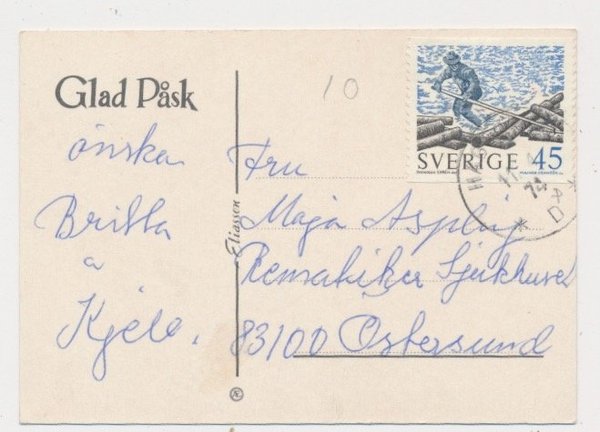 Glad Påsk
önska
Britta
a
Kjele.
Eliasson
10
SVERIGE 45
Fru
Maja Asplug
Rematiker Sjukhuset
83100 Östersund